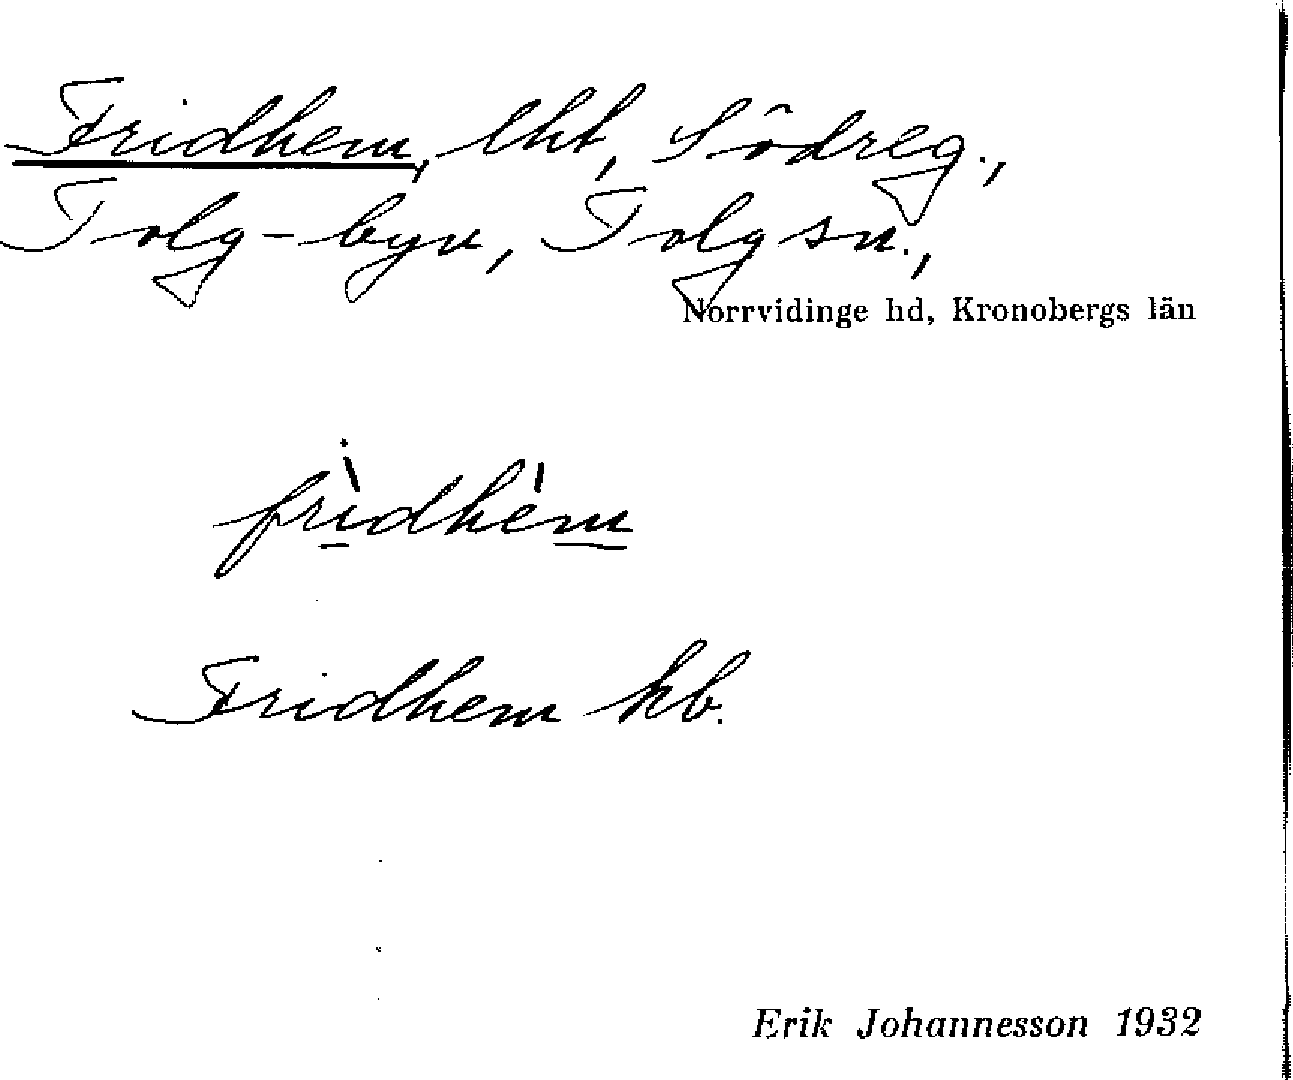 Fridhem, lht, Södreg.,
Tolg-byn, Tolg sn.,
Norrvidinge hd, Kronobergs län
frìdhém
Fridhem kb.
Erik Johannesson 1932